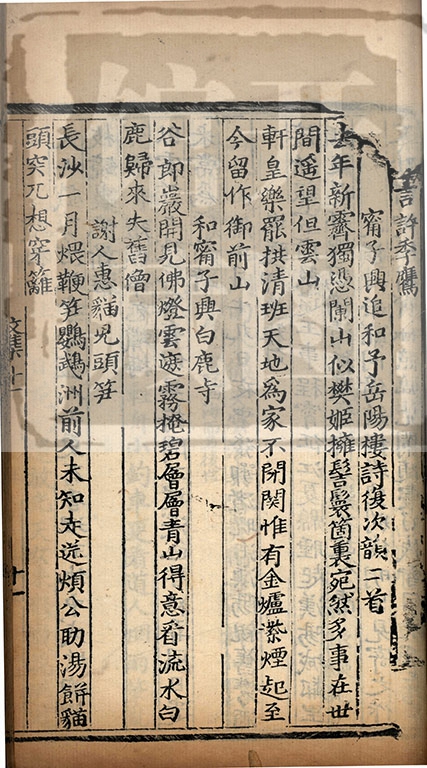 言許季鷹
甯子興追和予岳陽樓詩復次韻二首
去年新霽獨憑闌山似樊姬擁髻鬟箇裏宛然多事在世
間遥望但雲山
軒皇樂罷拱清班天地爲家不閉関惟有金爐縈煙起至
今留作御前山
和甯子興白鹿寺
谷部巖開見佛燈雲遮霧掩碧層層青山得意看流水白
鹿歸來失舊僧
謝人惠貓兒頭笋
長沙一月煨鞭笋鸚鵡洲前人未知走送煩公助湯餅貓
頭突兀想穿籬
十一